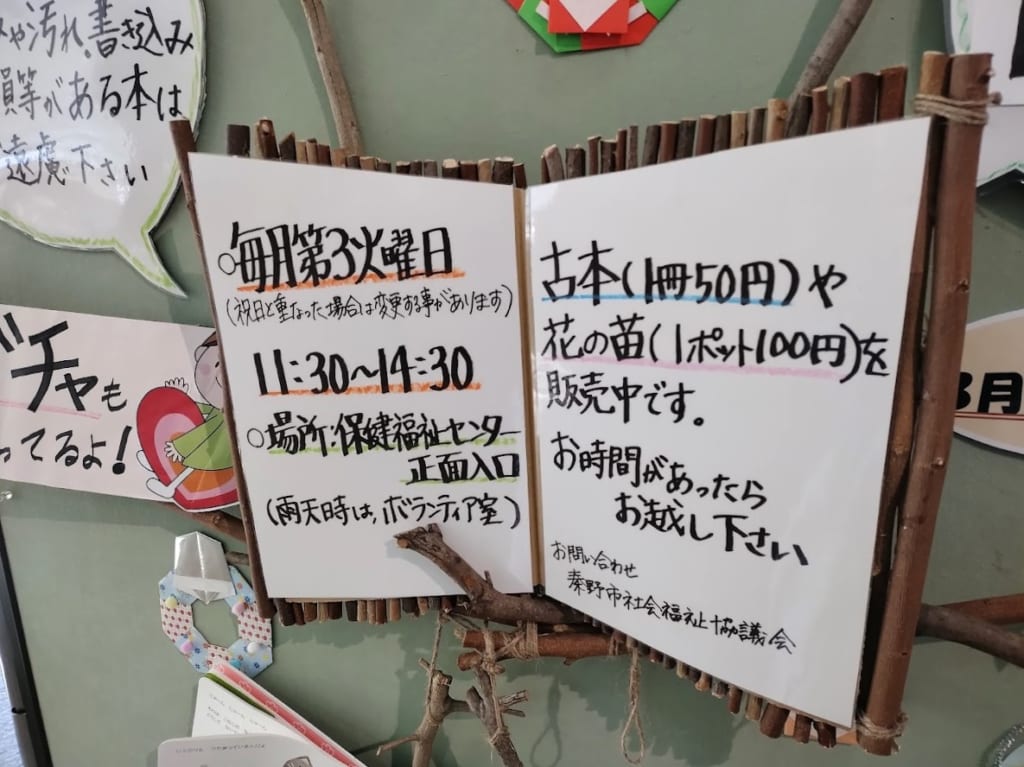 や汚れ、書き込み
等がある本は
遠慮下さい
○毎月第3火曜日
(祝日と重なった場合は変更する事があります)
11:30~14:30
○場所:保健福祉センター
正面入口
(雨天時は、ボランティア室)
古本(1冊50円)や
花の苗(1ポット100円)を
販売中です。
お時間があったら
お越し下さい
お問い合わせ
秦野市社会福祉協議会
ガチャも
ってるよ!
3月